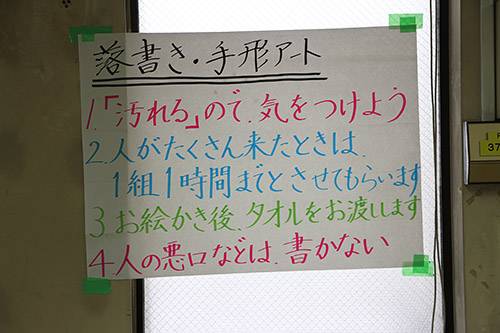 落書き・手形アート
1.「汚れる」ので、気をつけよう
2.人がたくさん来たときは、
1組1時間までとさせてもらいます
3.お絵かき後、タオルをお渡しします
4.人の悪口などは、書かない
37